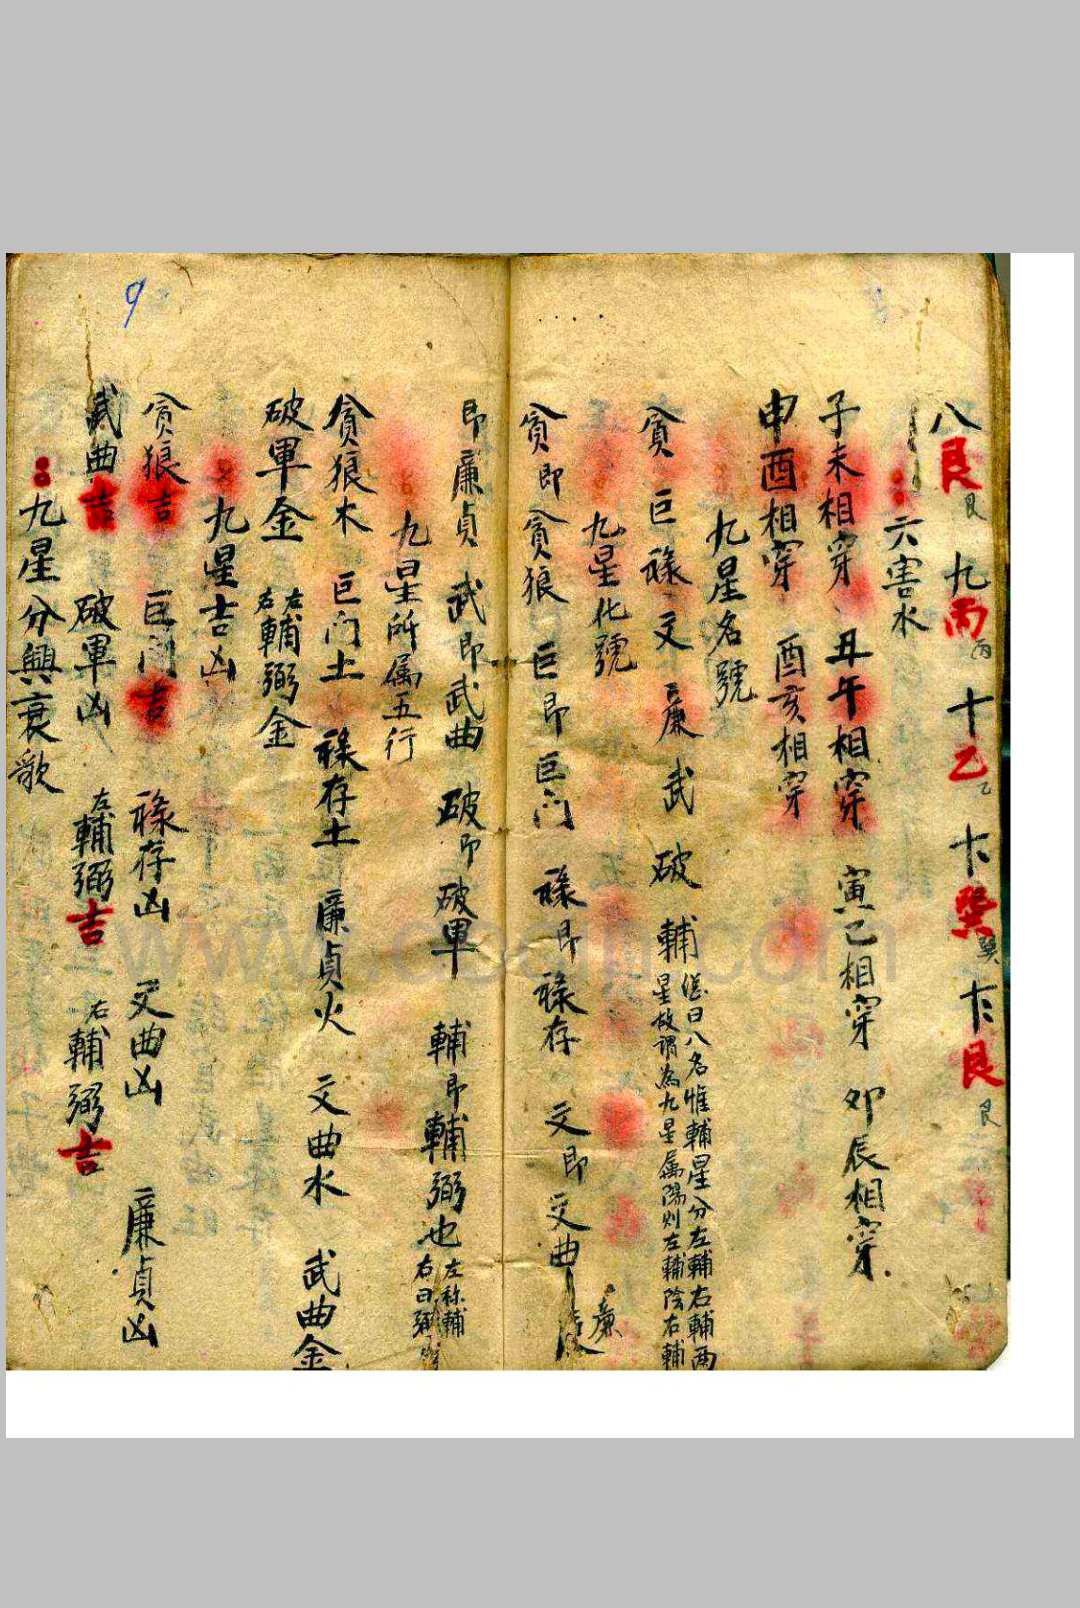 八艮艮 九丙丙 十乙乙 卞巽巽 卞艮艮
六害水
子未相穿 丑午相穿 寅巳相穿 卯辰相穿
申酉相穿 酉亥相穿
九星名號
貪 巨 祿 文 廉 武 破 輔 總曰八名惟輔星分左輔右輔兩
星故謂為九星属陽則左輔陰右輔
九星化號
貪即貪狼 巨即巨门 祿即祿存 文即文曲 廉
即廉貞 武即武曲 破即破軍 輔即輔弼也 左称輔
右曰弼
九星所属五行
貪狼木 巨门土 祿存土 廉貞火 文曲水 武曲金
破軍金 左右輔弼金
九星吉凶
貪狼吉 巨门吉 祿存凶 文曲凶 廉貞凶
武曲吉 破軍凶 左輔弼吉 右輔弼吉
九星分興衰歌
9